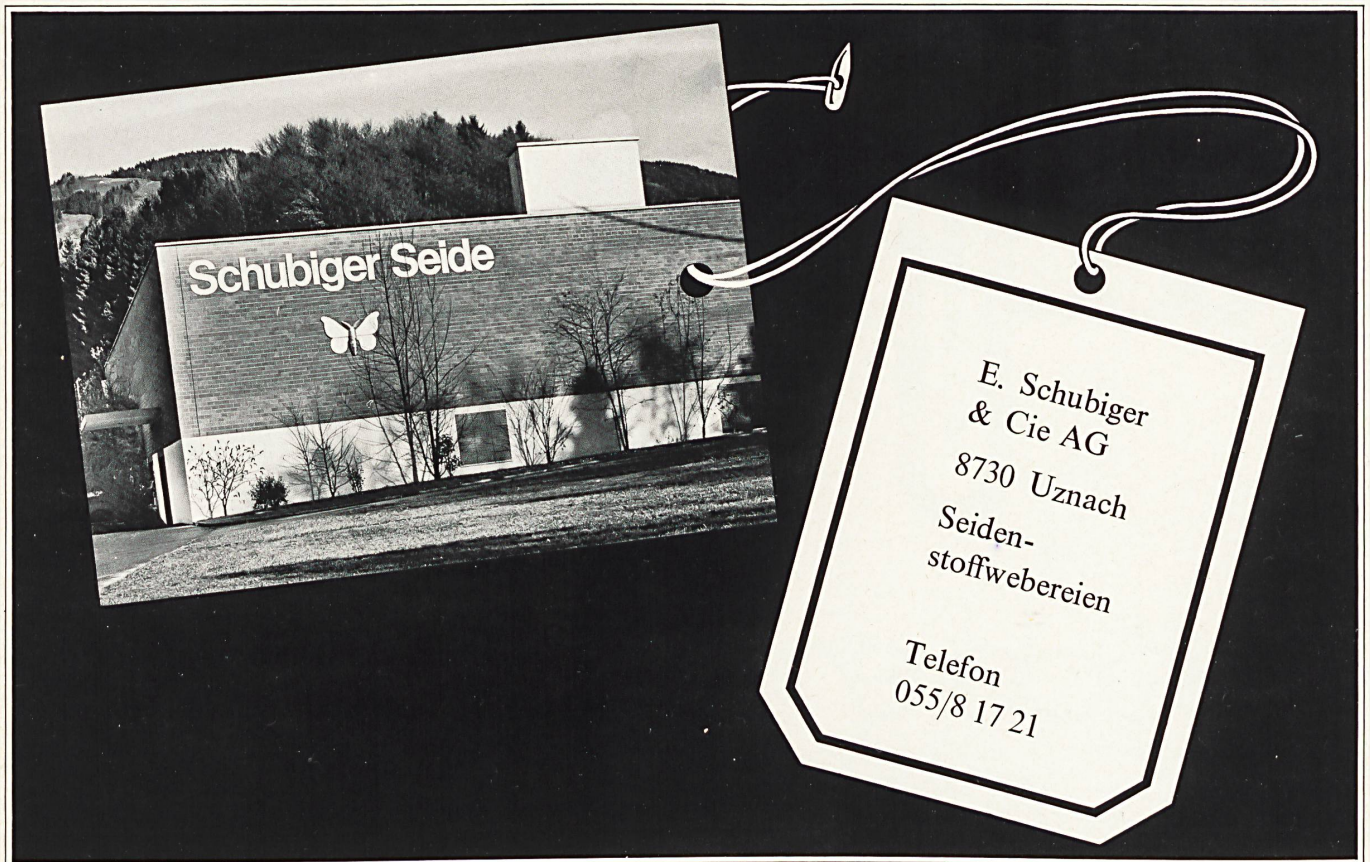 Schubiger Seide
E. Schubiger
& Cie AG
8730 Uznach
Seiden-
stoffwebereien
Telefon
055/8 17 21